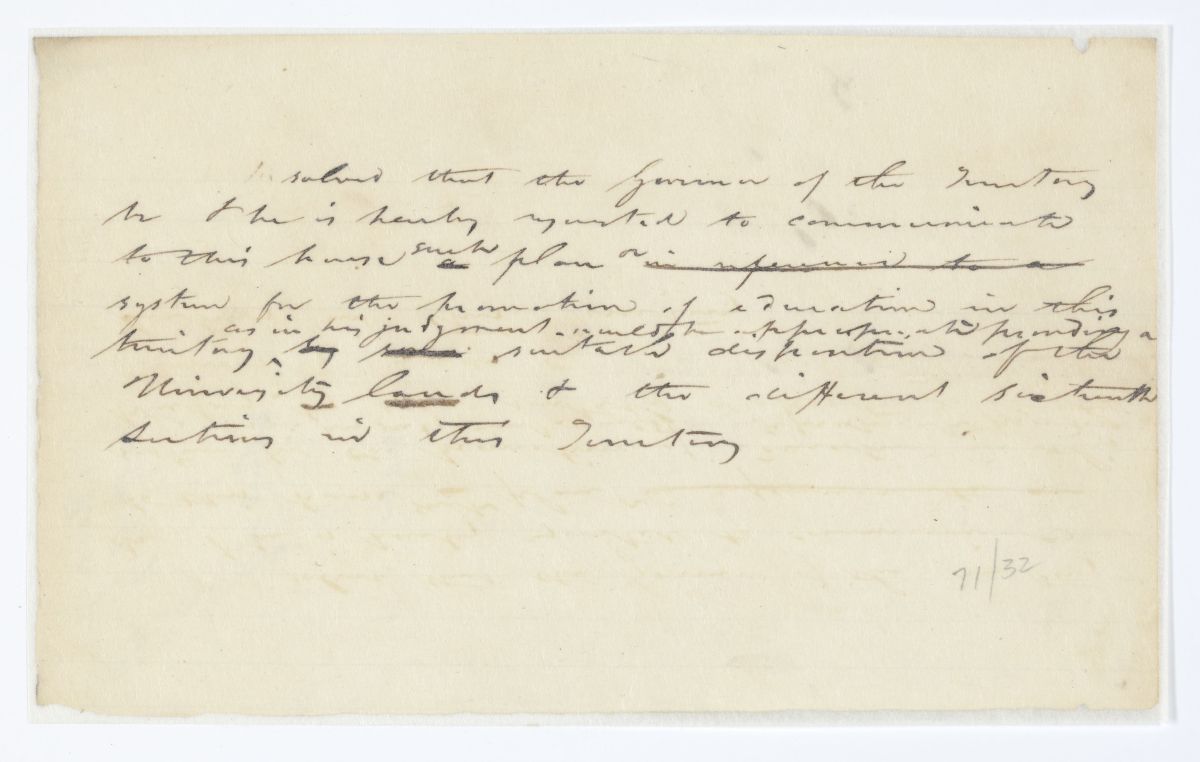 solved that the Governor of the Territory
be & he is hereby requested to communicate
to this house such a plan or in reference to a
system for the promotion of education in this
as in his judgment would be appropriate providing a
territory by suitable disposition of the
University lands & the different sixteenth
sections in this Territory
71/32